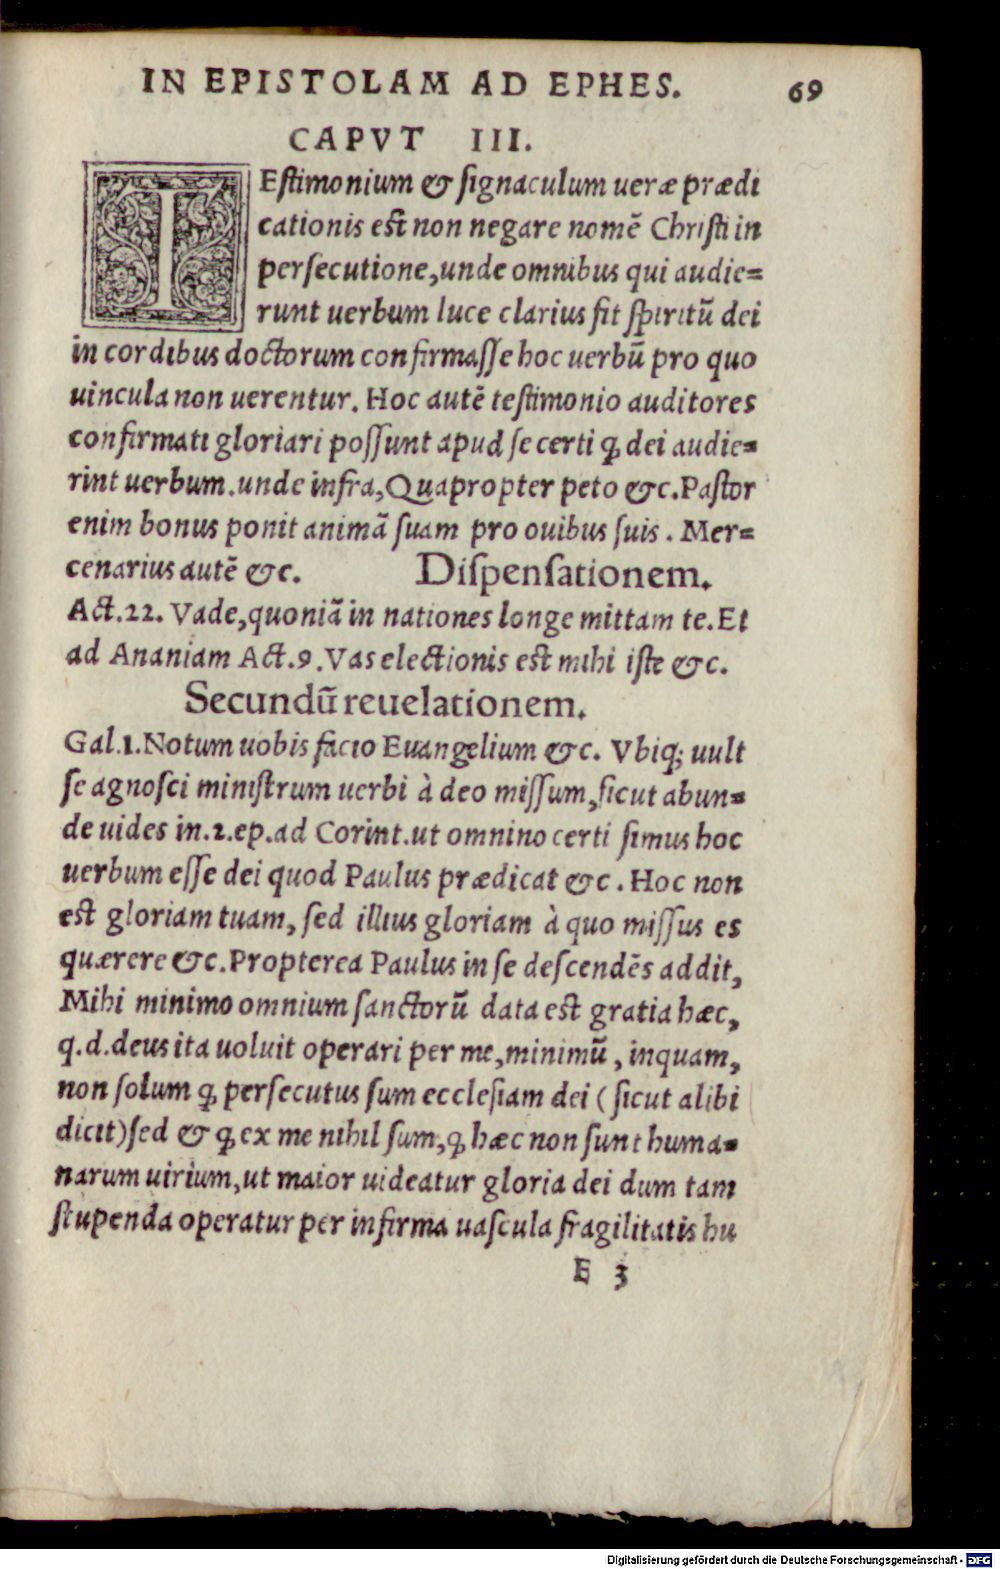 IN EPISTOLAM AD EPHES. 69
CAPVT III.
TEstimonium & signaculum ueræ prædi
cationis est non negare nomē Christi in
persecutione, unde omnibus qui audie=
runt uerbum luce clarius fit spiritū dei
in cordibus doctorum confirmasse hoc uerbū pro quo
uincula non uerentur. Hoc autē testimonio auditores
confirmati gloriari possunt apud se certi ꝙ dei audie=
rint uerbum. unde infra, Quapropter peto &c. Pastor
enim bonus ponit animā suam pro ouibus suis. Mer=
cenarius autē &c. Dispensationem.
Act. 22. Vade, quoniā in nationes longe mittam te. Et
ad Ananiam Act. 9. Vas electionis est mihi iste &c.
Secundū reuelationem.
Gal. 1. Notum uobis facio Euangelium &c. Vbiq; uult
se agnosci ministrum uerbi à deo missum, sicut abun=
de uides in. 2. ep. ad Corint. ut omnino certi simus hoc
uerbum esse dei quod Paulus prædicat &c. Hoc non
est gloriam tuam, sed illius gloriam à quo missus es
quærere &c. Propterea Paulus in se descendēs addit,
Mihi minimo omnium sanctorū data est gratia hæc,
q. d. deus ita uoluit operari per me, minimū, inquam,
non solum ꝙ persecutus sum ecclesiam dei (sicut alibi
dicit) sed & ꝙ ex me nihil sum, ꝙ hæc non sunt huma=
narum uirium, ut maior uideatur gloria dei dum tam
stupenda operatur per infirma uascula fragilitatis hu
E 3
Digitalisierung gefördert durch die Deutsche Forschungsgemeinschaft - DFG